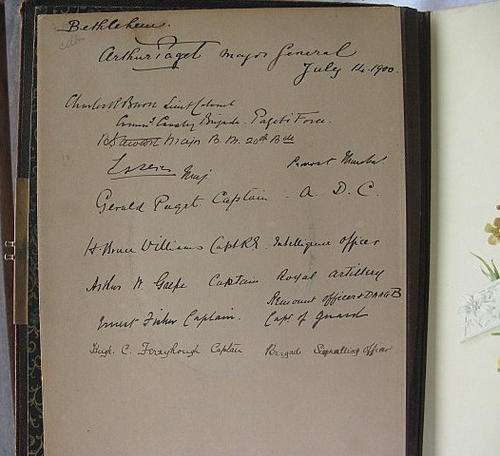 Bethlehem.
Arthur Paget Major General
July 14. 1900.
Lieut Colonel
Cavalry Brigade - Paget's Force.
Major B. M. 20th Bde
Essex Maj Provost Marshal
Gerald Paget Captain - A. D. C.
H Bruce Williams Capt RE. Intelligence Officer
Arthur W. Captain Royal Artillery
Remount Officer & DAAG B
Ernest Fisher Captain. Capt. of Guard
Hugh. C. Fernyhough Captain Brigade Signalling Officer